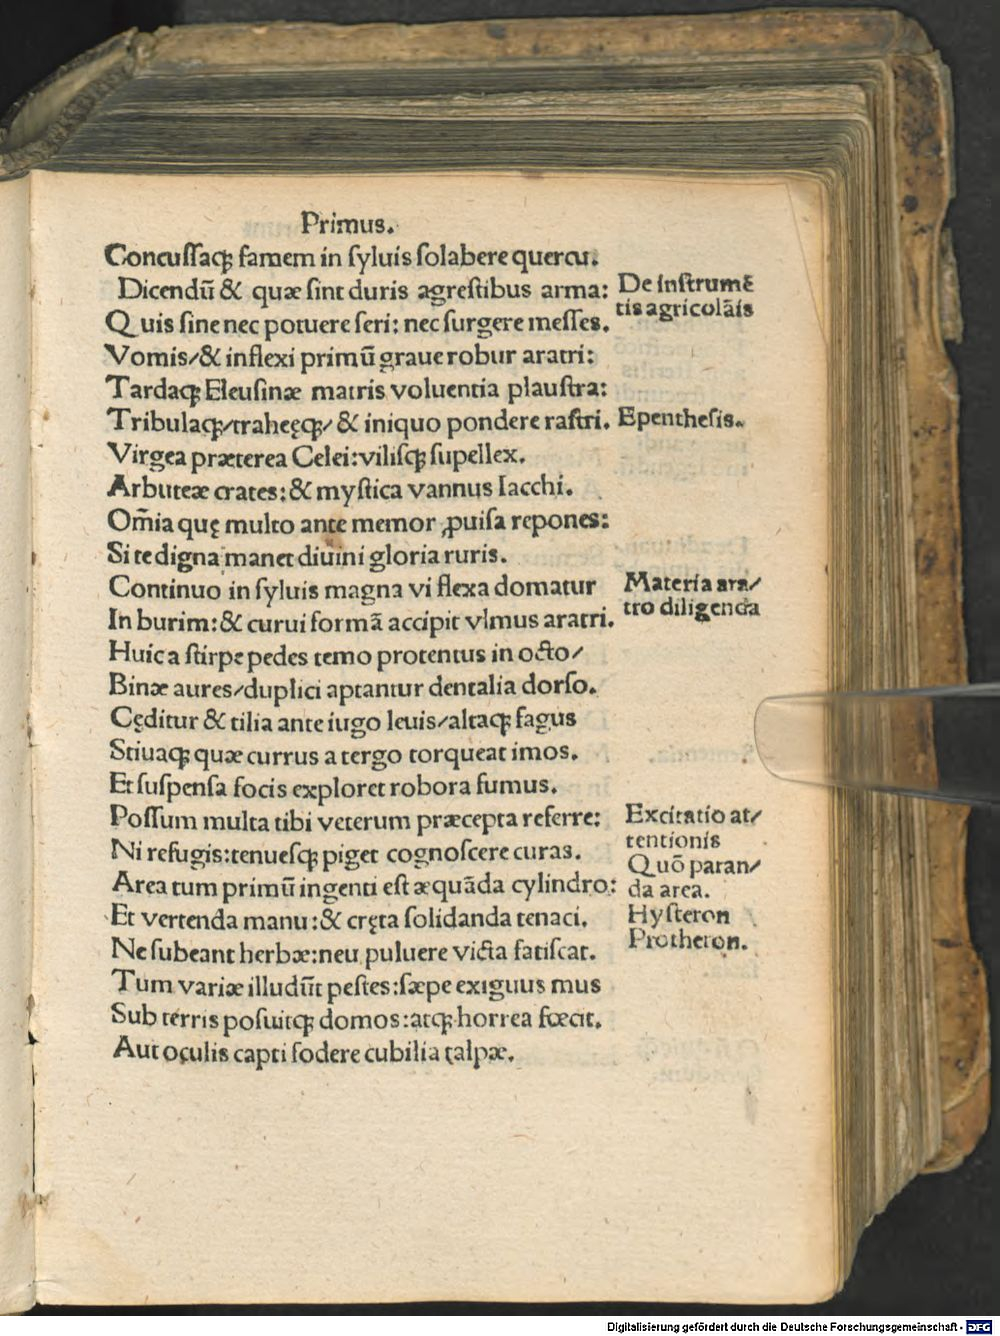 Primus.
Concuſſaqꝫ famem in ſyluis ſolabere quercu.
Dicendū & quæ ſint duris agreſtibus arma:
Quis ſine nec potuere ſeri: nec ſurgere meſſes.
Vomis/& inflexi primū graue robur aratri:
Tardaqꝫ Eleuſinæ matris voluentia plauſtra:
Tribulaqꝫ/traheęqꝫ/& iniquo pondere raſtri.
Virgea præterea Celei:viliſqꝫ ſupellex.
Arbuteæ crates:& myſtica vannus Iacchi.
Om̄ia quę multo ante memor ꝓuiſa repones:
Si te digna manet diuini gloria ruris.
Continuo in ſyluis magna vi flexa domatur
In burim:& curui formā accipit vlmus aratri.
Huic a ſtirpe pedes temo protentus in octo/
Binæ aures/duplici aptantur dentalia dorſo.
Cęditur & tilia ante iugo leuis/altaqꝫ fagus
Stiuaqꝫ quæ currus a tergo torqueat imos.
Et ſuſpenſa focis exploret robora fumus.
Poſſum multa tibi veterum præcepta referre:
Ni refugis:tenueſqꝫ piget cognoſcere curas.
Area tum primū ingenti eſt æquāda cylindro:
Et vertenda manu:& cręta ſolidanda tenaci.
Ne ſubeant herbæ:neu puluere victa fatiſcat.
Tum variæ illudūt peſtes:ſæpe exiguus mus
Sub terris poſuitqꝫ domos:atqꝫ horrea fœcit.
Aut oculis capti fodere cubilia talpæ.
De inſtrumē
tis agricolāis
Epentheſis.
Materia ara/
tro diligenda
Excitatio at/
tentionis
Quō paran/
da area.
Hyſteron
Protheron.
Digitalisierung gefördert durch die Deutsche Forschungsgemeinschaft - DFG